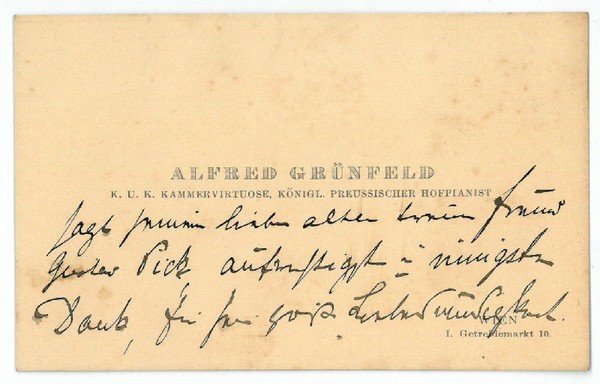 ALFRED GRÜNFELD
K. U. K. KAMMERVIRTUOSE, KÖNIGL. PREUSSISCHER HOFPIANIST
sagt seinem lieben alten treuen Freund
Gustav Pick aufrichtigst u innigsten
Dank, für seine Liebenswürdigkeit.
WIEN
I. Getreidemarkt 10.